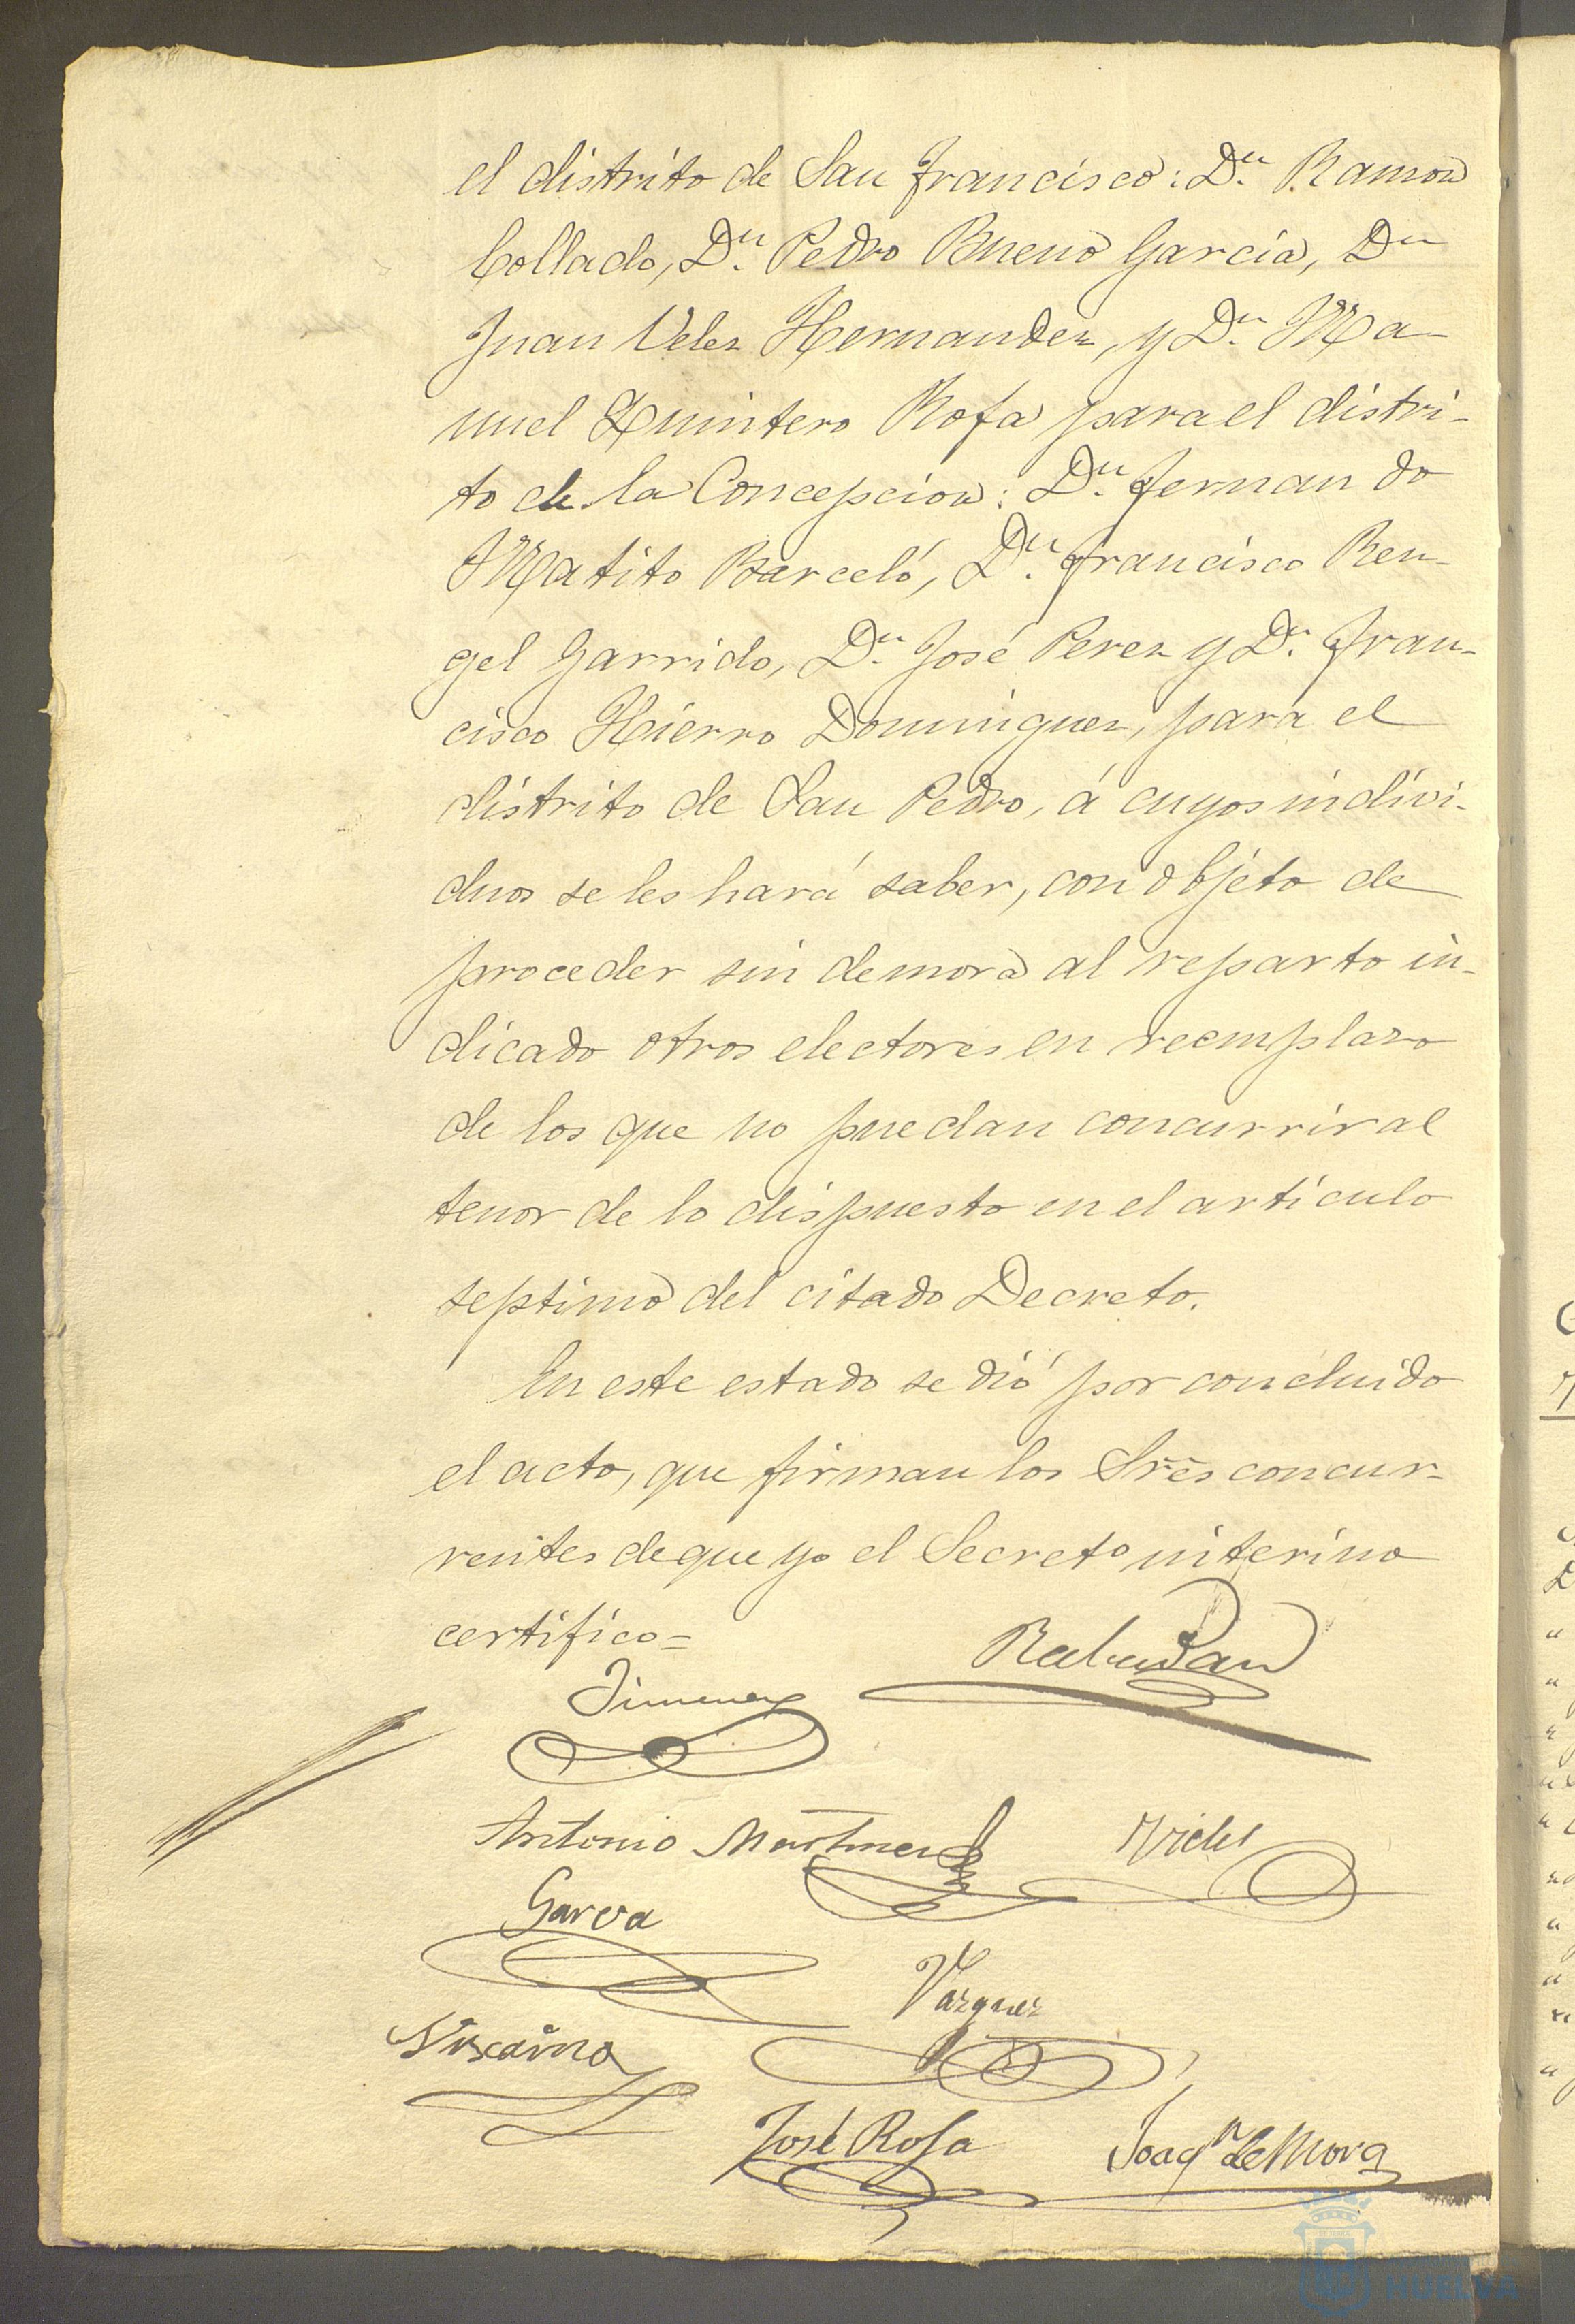 el distrito de San Francisco: Dn. Ramon
Collado, Dn. Pedro Bueno Garcia, Dn
Juan Velez Hernandez, y Dn. Ma-
nuel Quintero Rofa para el distri-
to de la Concepcion: Dn. Fernando
Matito Barceló, Dn. Francisco Ren-
gel Garrido, Dn. José Perez y Dn. Fran-
cisco Hierro Dominguez, para el
distrito de San Pedro, á cuyos indivi-
duos se les hará saber, con objeto de
proceder sin demora al reparto in-
dicado otros electores en reemplazo
de los que no puedan concurrir al
tenor de lo dispuesto en el artículo
septimo del citado Decreto.
En este estado se dió por concluido
el acto, que firman los Sres concur-
rentes de que yo el Secreto interino
certifico=
Rabadan
Jimenez
Antonio Martinez
Garcia
Vazquez
Vizcaino
José Rofa
Joaqn de Mora
HUELVA